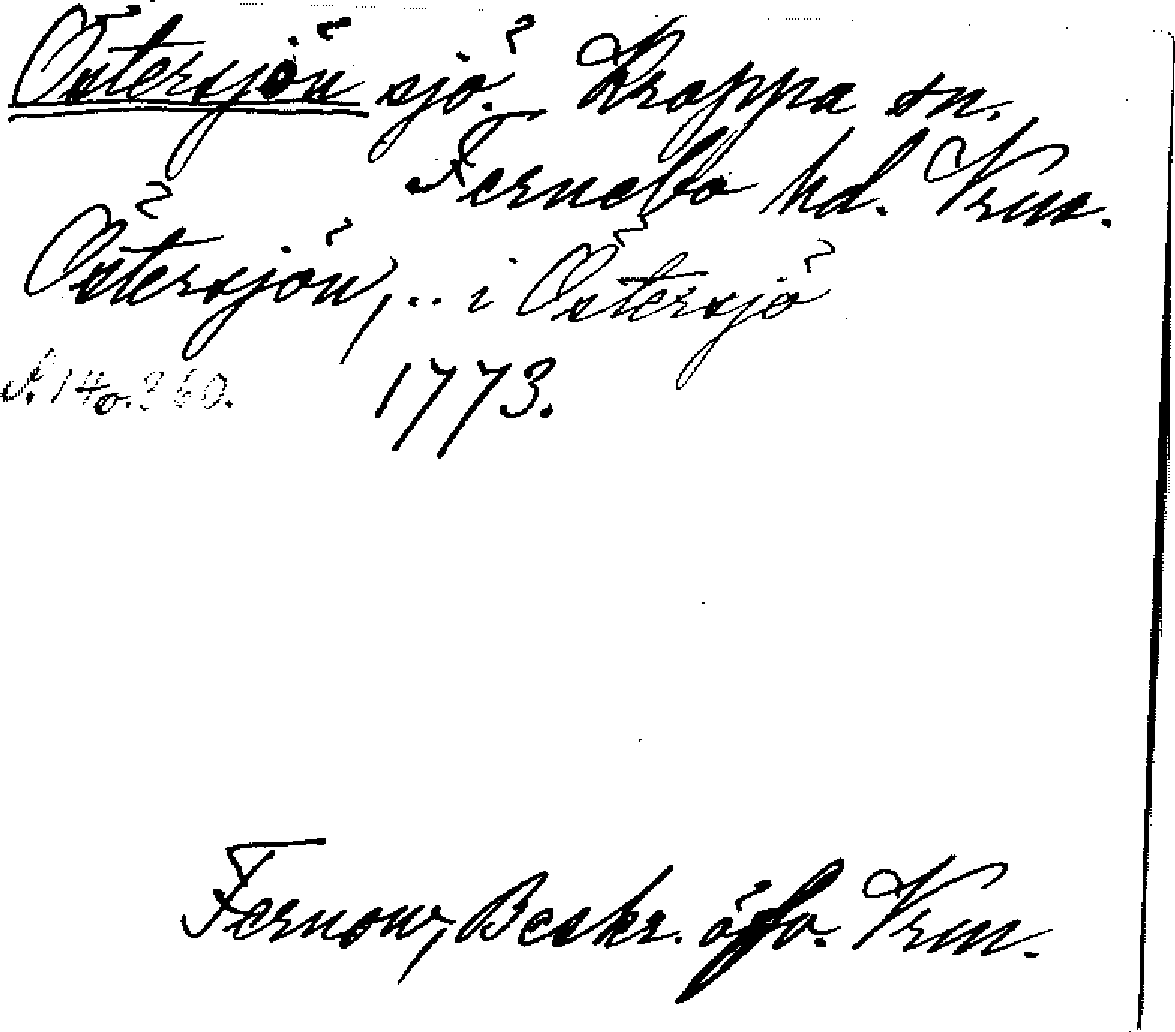 Östersjön sjö. Kroppa sn.
Fernebo hd. Vrm.
Östersjön, .. i Östersjö
1773.
Fernow, Beskr. öfv. Vrm.